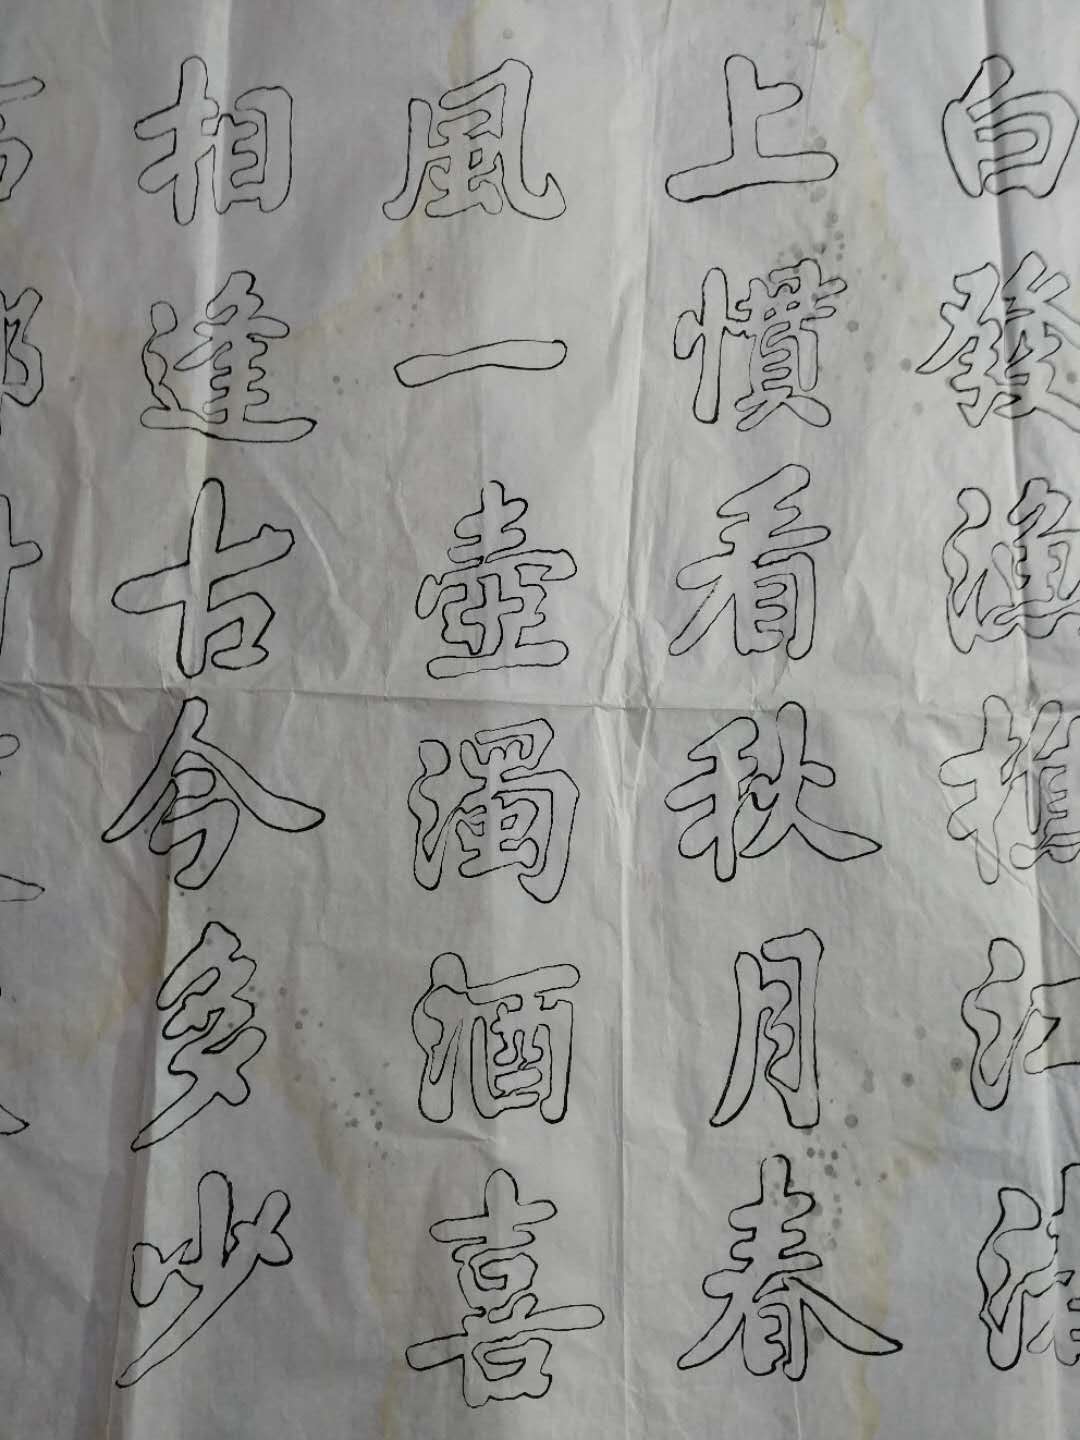 白發漁樵江渚
上慣看秋月春
風一壺濁酒喜
相逢古今多少